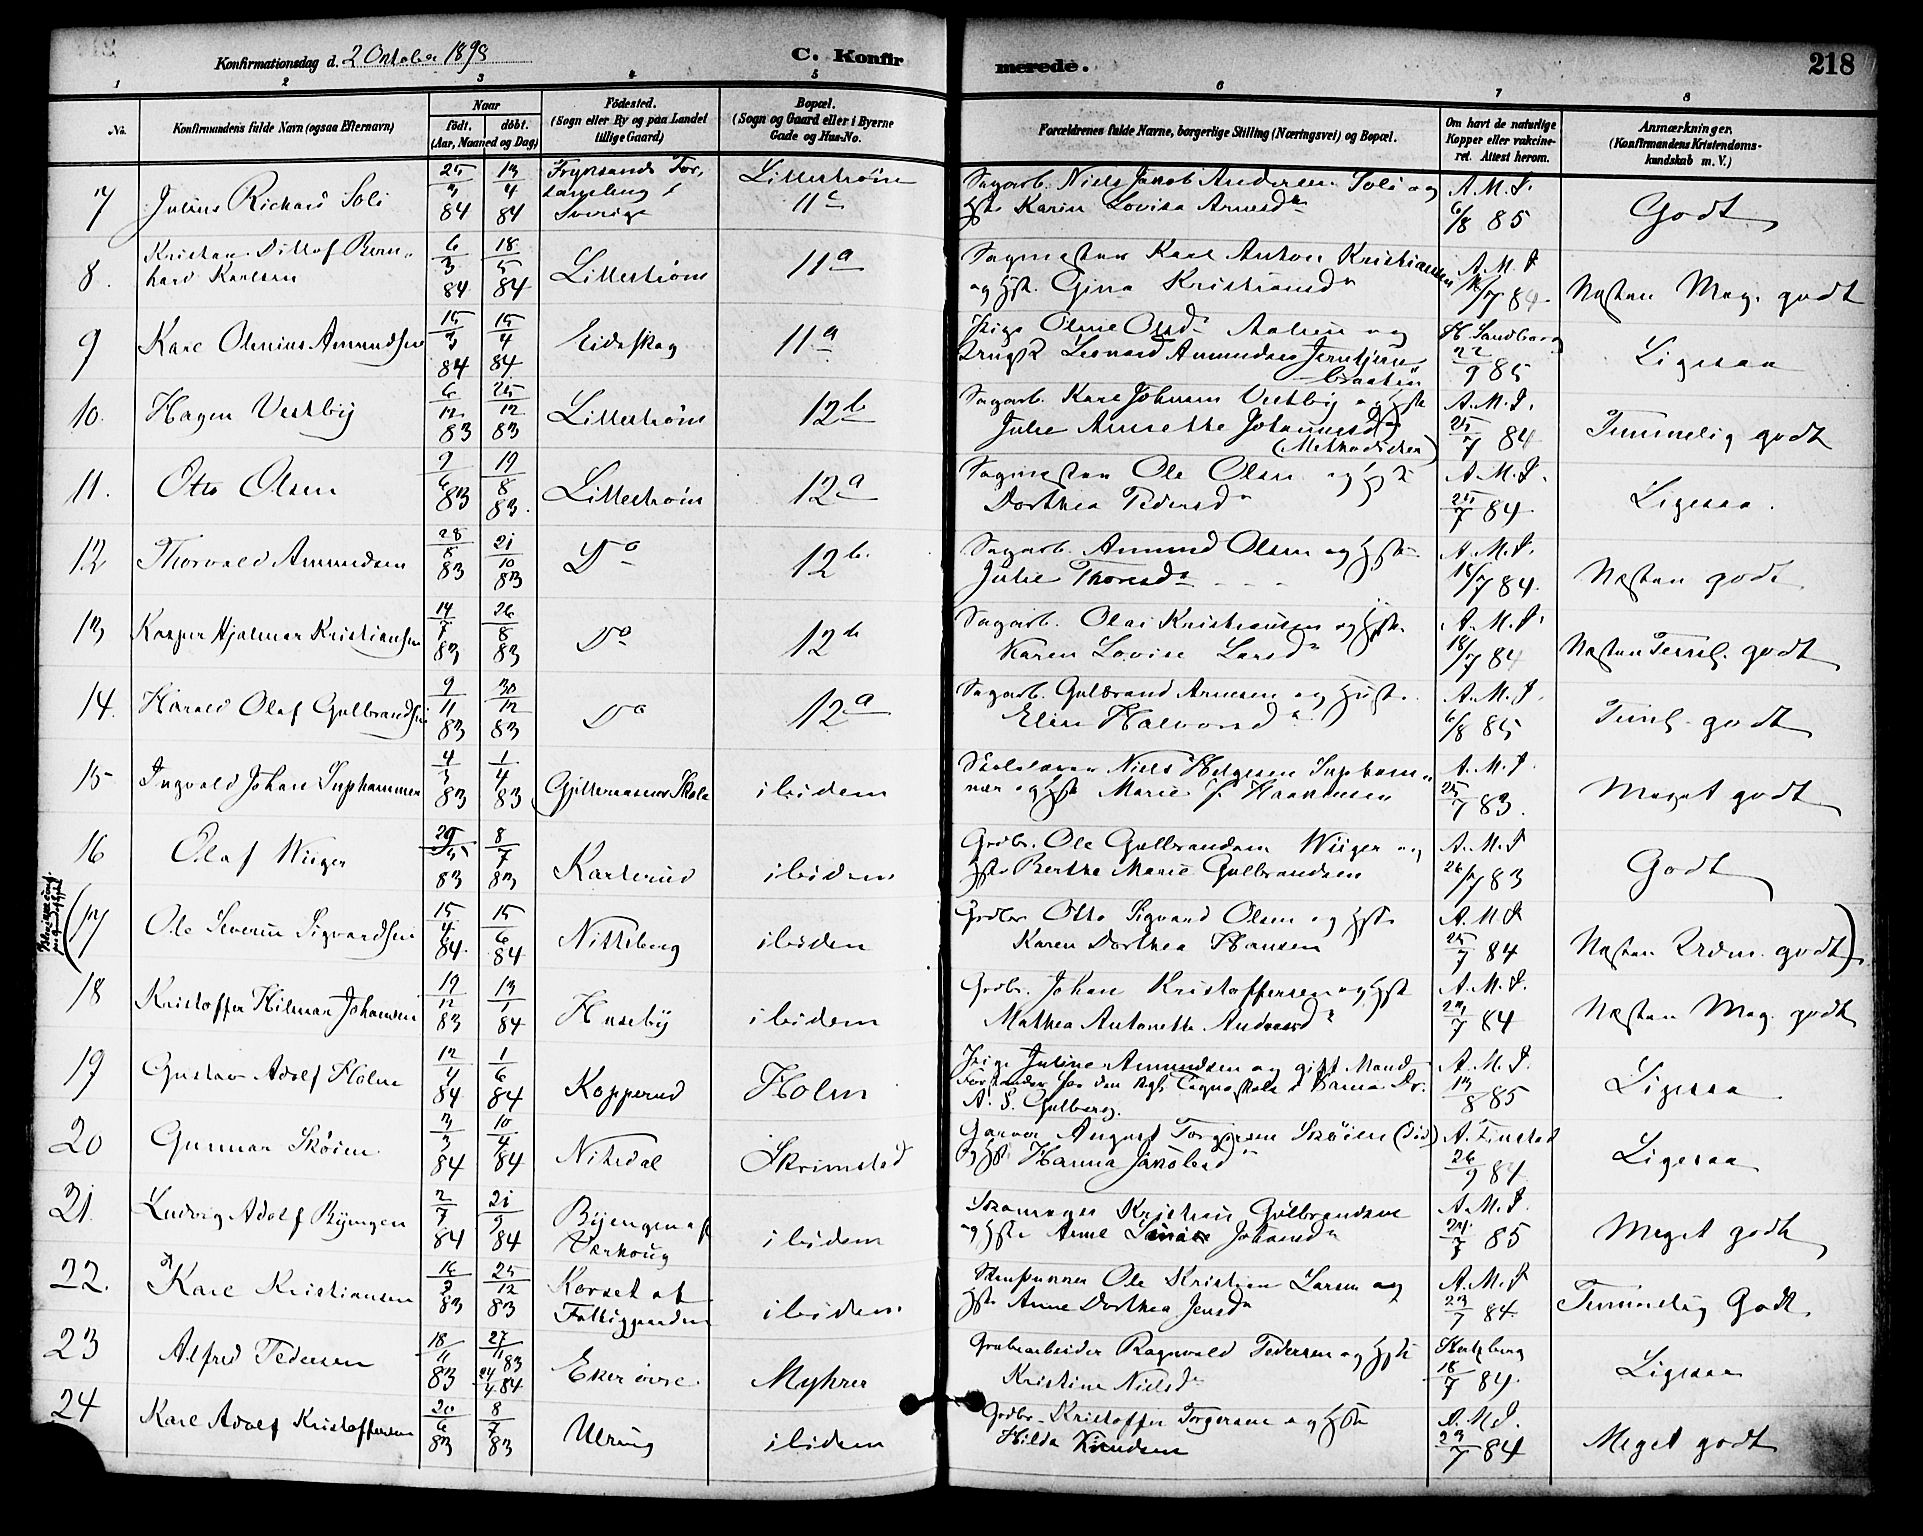 Konfirmationsdag d. 2 Oktober 1898
C. Konfirmerede.
218
1 2 3 4 5 6 7 8
No.
Konfirmandens fulde Navn (ogsaa Efternavn)
Naar
født. døbt.
(Aar, Maaned og Dag)
Fødested.
(Sogn eller By og paa Landet
tillige Gaard)
Bopæl.
(Sogn og Gaard eller i Byerne
Gade og Hus-No.
Forældrenes fulde Navne, borgerlige Stilling (Næringsvei) og Bopæl.
Om havt de naturlige
Kopper eller vaccine-
ret. Attest herom.
Anmærkninger.
(Konfirmandens Kristendoms-
kundskab m. V.)
7 Julius Richard Soli 25/3 84 13/4 84 Sverige Lillestrøm 11c
Sagarb. Niels Jakob Andersen Soli og
Hst. Karin Lovisa Arnesd. A.M.I. 6/8 85 Godt
8. Kristian Ditlof Bern-
hard Karlsen 6/3 84 18/5 84 Lillestrøm 11a
Sagmester Karl Anton Kristiansen
og Hst. Gina Kristiansd. A.M.I. /7 84 Næsten Meg. godt
9 Karl Olenius Amundsen 15/3 84 15/4 84 Eidskog 11a
Pige Oline Olsd. og
Leonard Amundsen
H. Sandberg 22/9 85 Ligesaa
10. Hagen Vestby 6/12 83 25/12 83 Lillestrøm 12b
Sagarb. Karl Johnsen Vestby og Hst.
Julie Annette Johannesd.
(Methodister) A.M.I. 25/7 84 Temmelig godt
11. Otto Olsen 7/6 83 19/8 83. Lillestrøm 12a
Sagmester Ole Olsen og Hst.
Dorthea Pedersd. A.M.I. 25/7 84 Ligesaa.
12 Thorvald Amundsen 28/8 83 21/10 83 Do 12b.
Sagarb. Amund Olsen og Hst.
Julie Thoresd. A.M.I. 18/7 84. Næsten godt
13 Kasper Hjalmar Kristiansen 14/7 83 26/8 83 Do 12b
Sagarb. Olai Kristiansen og Hst.
Karen Lovise Larsd. A.M.I. 18/7 84 Næsten Teml. godt
14. Harald Olaf Gulbrandsen 9/11 83 30/12 83 Do 12a
Sagarb. Gulbrand Arnesen og Hust.
Elin Halvorsd. A.M.I. 6/8 85 Teml. godt
15 Ingvald Johan Suphammer 4/3 83 1/4 83 Skole ibidem
Skolelærer Niels Helgesen Supham-
mer og Hst. Marie J. Haakensen A.M.I. 25/7 83. Meget godt
16 Olaf Wiiger 29/5 83 8/7 83 Karterud ibidem
Grdbr. Ole Gulbrandsen Wiiger og
Hst. Berthe Marie Gulbrandsen A.M.I. 26/7 83 Godt
(17 Ole Severin Sigvardsen 15/4 84. 15/6 84 Nitteberg ibidem
Grdbr. Otto Sigvard Olsen og Hst.
Karen Dorthea Hansen A.M.I. 25/7 84 Næsten Udm. godt)
18 Kristoffer Hilmar Johansen 19/12 83 13/1 84 Huseby ibidem
Grdbr. Johan Kristoffersen og Hst.
Mathea Antonette Andreasd. A.M.I. 23/7 84 Næsten Meg. godt
19 Gustav Adolf Holm 12/4 84 1/6 84 Kopperud Holm
Pige Juline Amundsen og gift Mand
Forstander for den kgl. Tegneskole i Kr.a Dr.
A. S. Gulberg. A.M.I. 13/8 85 Ligesaa
20 Gunnar Skøien 3/3 84 10/4 84 Nitedal Skrimstad
Garver August Torgersen Skøien (død)
og Hst. Hanna Jakobsd. A. Finstad 26/9 84 Ligesaa
21. Ludvig Adolf Byengen 2/7 84 21/9 84 Byengen af
ibidem
Skomager Kristian Gulbrandsen
og Hst. Anne Johansd. A.M.I. 24/7 85 Meget godt
22. Karl Kristiansen 16/9 83 25/12 83 Korset at
Fattiggaarden ibidem
Ole Kristian Larsen og
Hst. Anne Dorthea Jensd. A.M.I. 23/7 84. Temmelig Godt.
23 Alfred Pedersen 18/11 83 27/11 83 24/4 84 Eker øvre. Myhrer
Grubearbeider Ragnvald Pedersen og Hst.
Kristine Nielsd. Hertzberg 18/7 84. Ligesaa
24 Karl Adolf Kristoffersen 20/6 83 8/7 83 Ulrung ibidem
Grdbr. Kristoffer Torgersen og Hst.
Hilda Knudsen A.M.I. 23/7 84 Meget godt